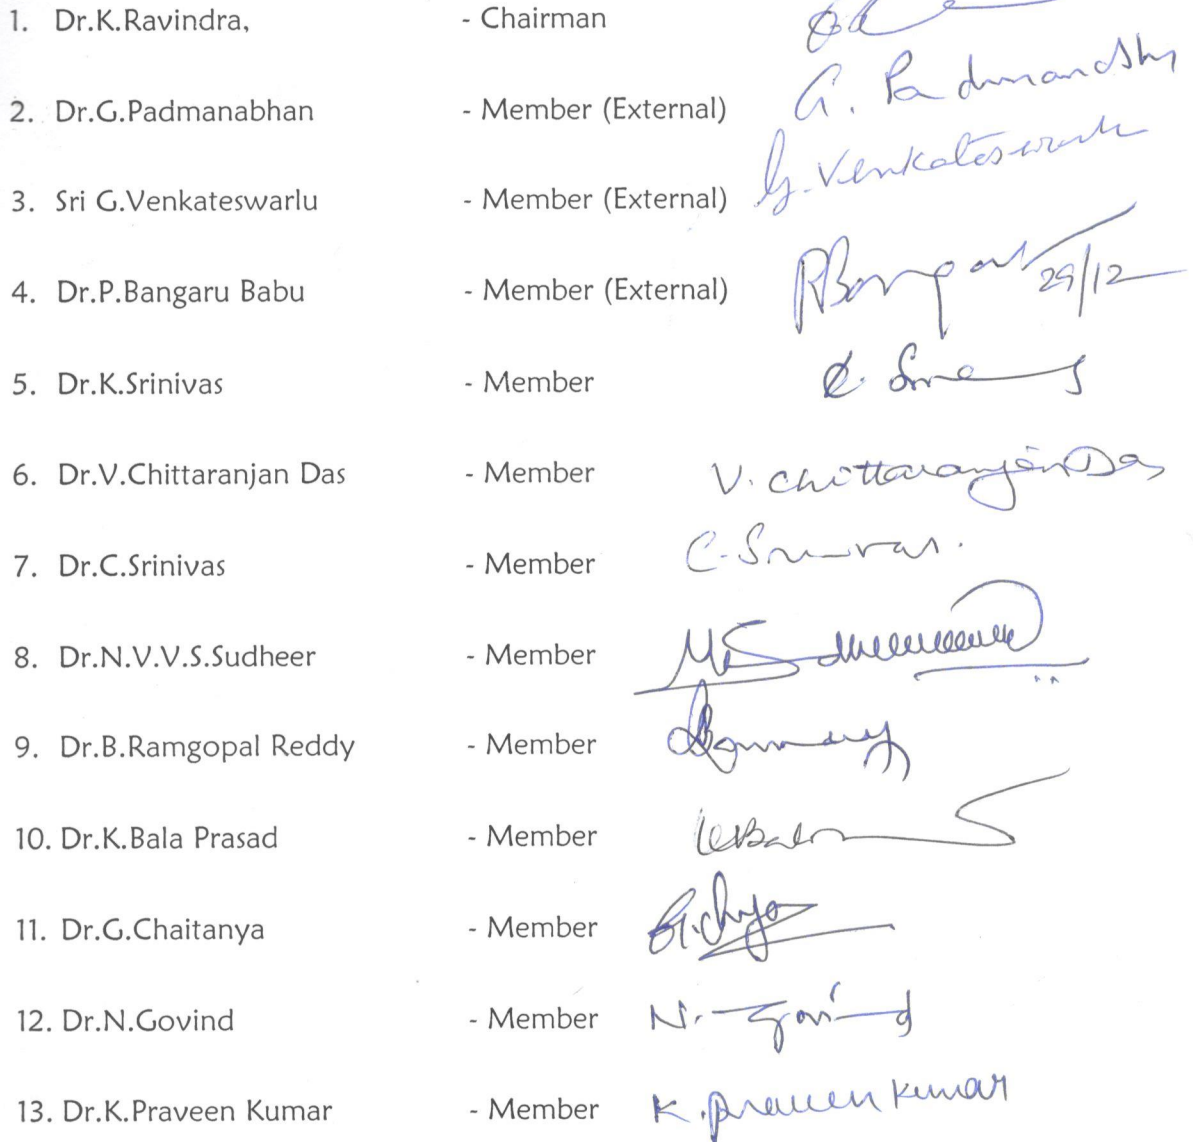 1. Dr.K.Ravindra, - Chairman
2. Dr.G.Padmanabhan - Member (External) G. Padmanabhan
3. Sri G.Venkateswarlu - Member (External) G. Venkateswarlu
4. Dr.P.Bangaru Babu - Member (External) 29/12
5. Dr.K.Srinivas - Member
6. Dr.V.Chittaranjan Das - Member V. Chittaranjan Das
7. Dr.C.Srinivas - Member C. Srinivas.
8. Dr.N.V.V.S.Sudheer - Member
9. Dr.B.Ramgopal Reddy - Member
10. Dr.K.Bala Prasad - Member
11. Dr.G.Chaitanya - Member
12. Dr.N.Govind - Member N. Govind
13. Dr.K.Praveen Kumar - Member K. Praveen Kumar